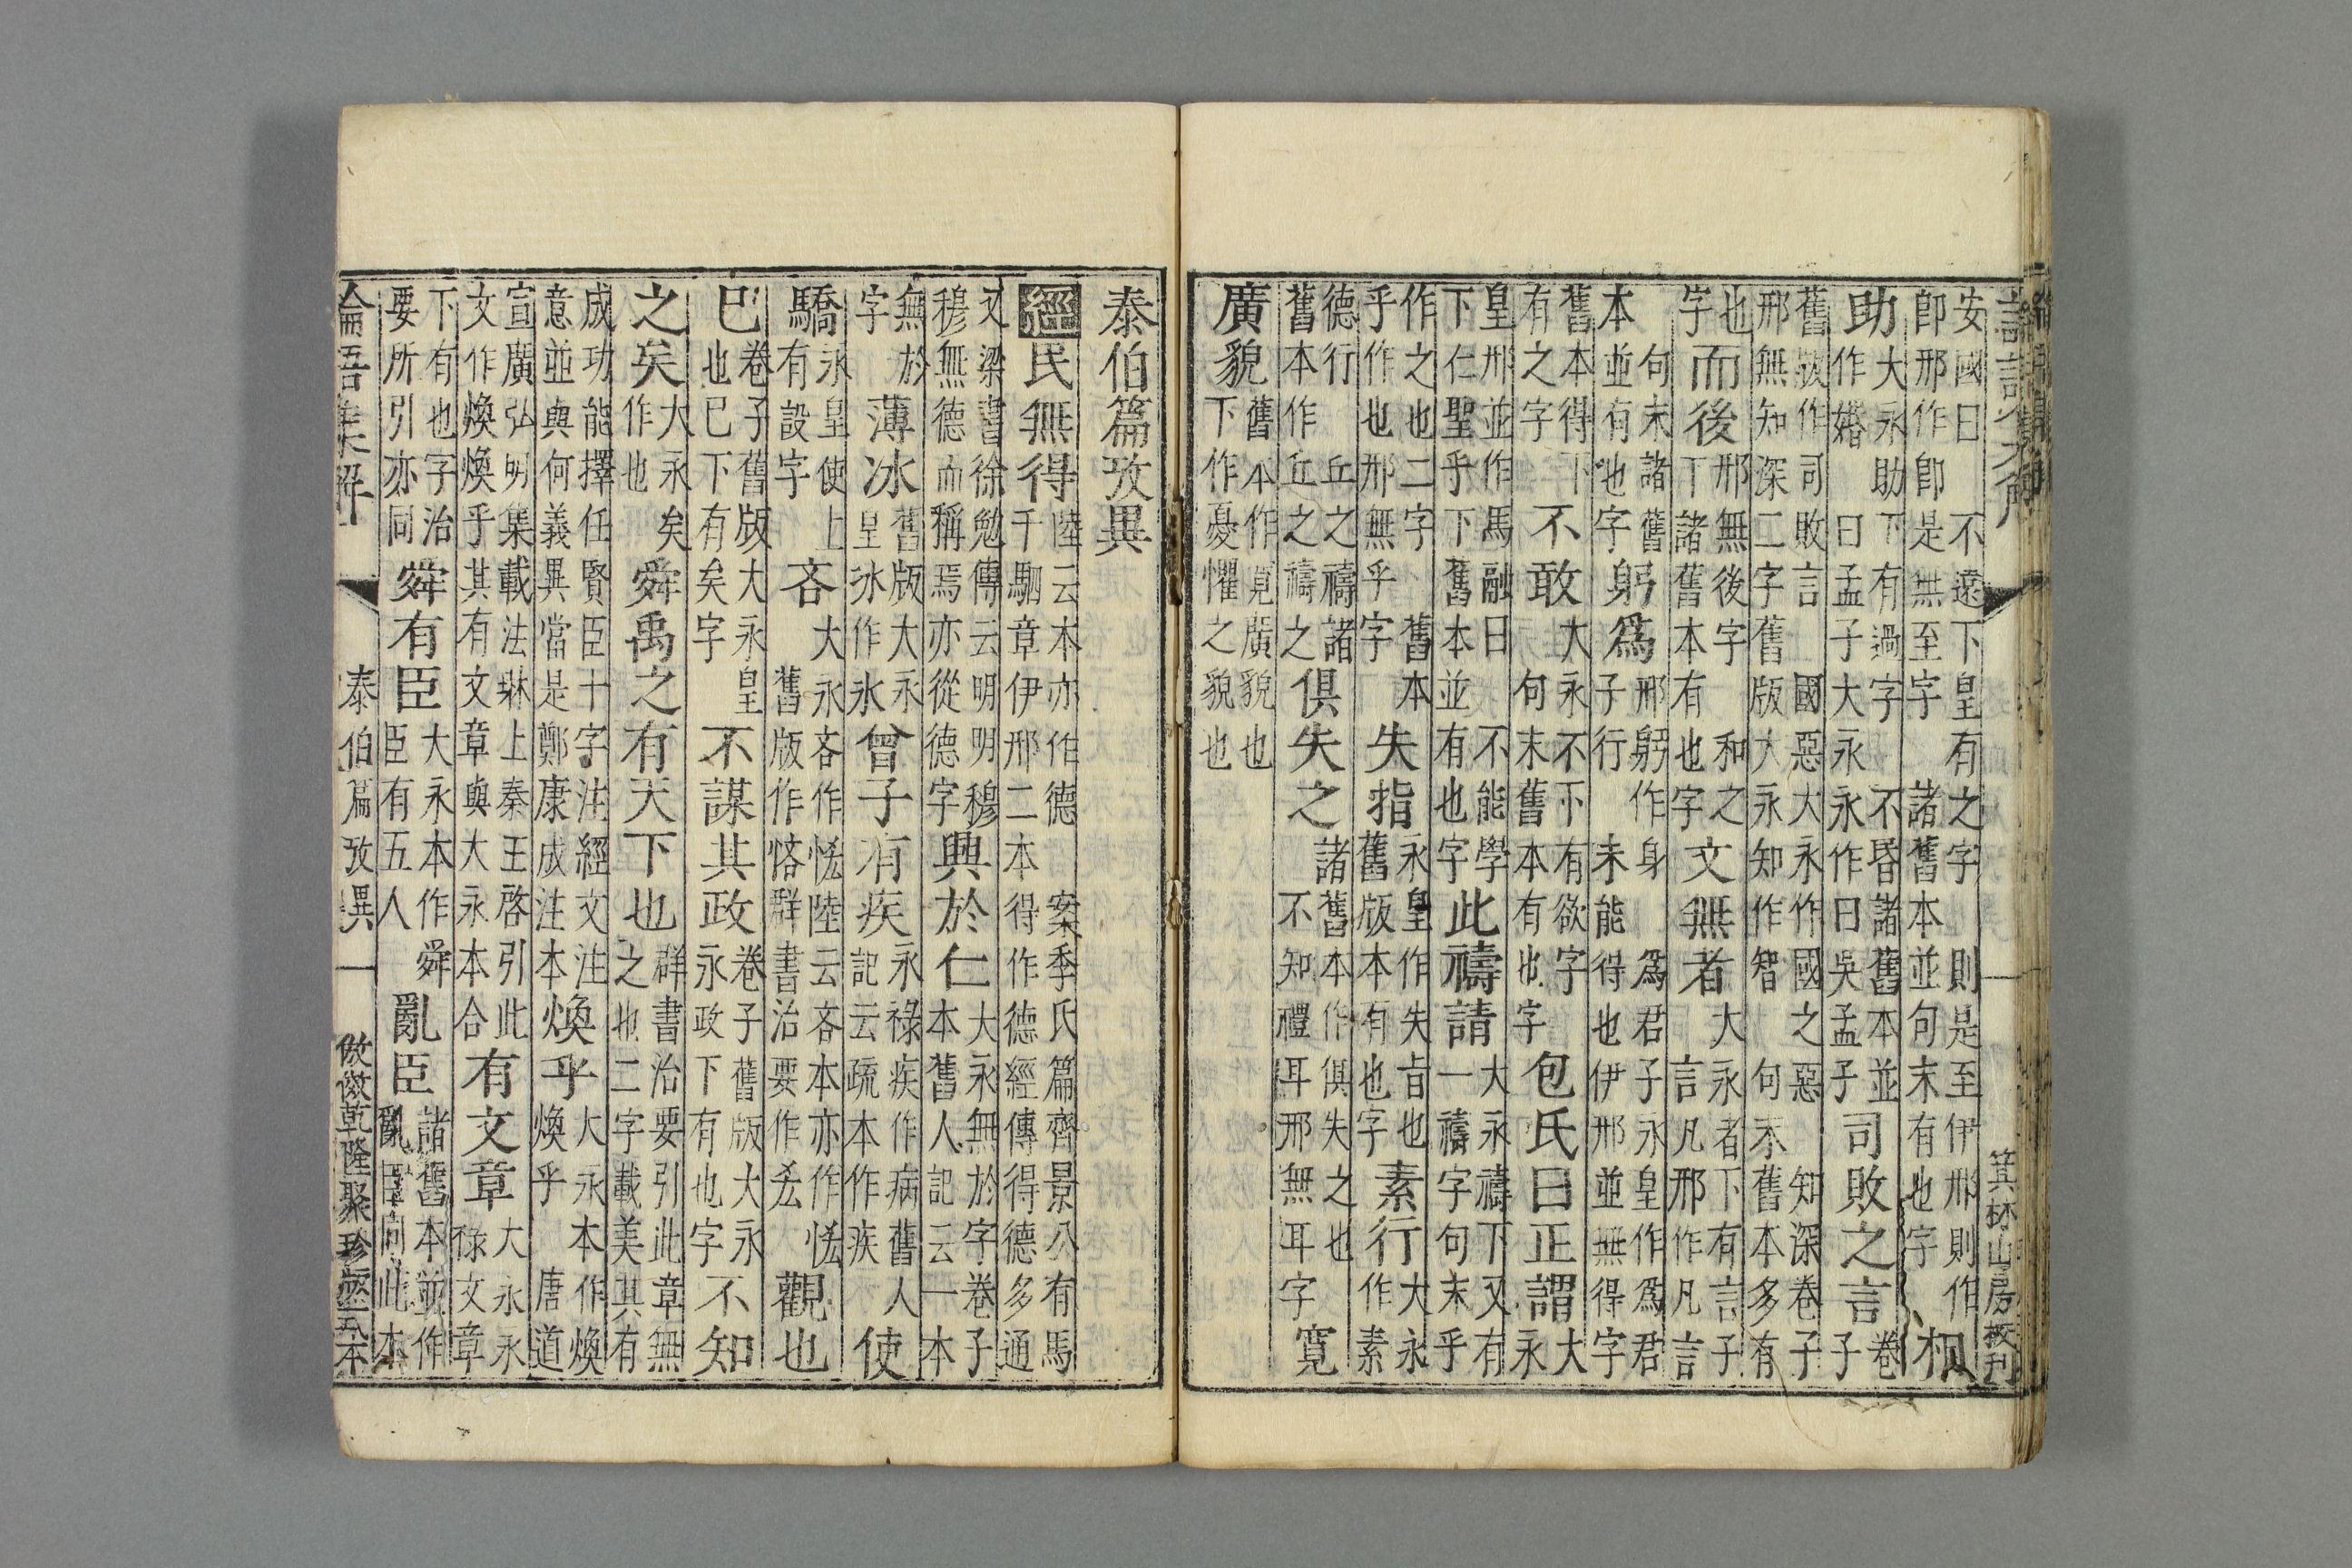 安國曰　不遠下皇有之字　則是至伊邢則作
即邢作即是無至字　諸舊本並句末有也字　相
助　大永助下有過字　不昏諸舊本並
作婚　曰孟子大永永作曰吳孟子　司敗之言　卷
子
舊版作司敗言　國惡大永作國之惡　知深卷子
邢無知深二字舊版大永知作智　句末舊本多有
也
字　而後　邢無後字　和之
下諸舊本有也字　文無者　大永者下有言子
言凡邢作凡言
句末諸舊
本並有也字　躬爲　邢躬作身　爲君子永皇作爲君
子行　未能得也伊邢並無得字
舊本得下
有之字　不敢　大永不下有欲字
句末舊本有也字　包氏曰正謂　大
永
皇邢並作馬融曰　不能學
下仁聖乎下舊本並有也字　此禱請　大永禱下又有
一禱字句末乎
作之也二字　舊本
乎作也邢無乎字　失指　永皇作失旨也
舊版本有也字　素行　大永
作素
德行　丘之禱諸
舊本作丘之禱之　俱失之　諸舊本作俱失之也
不知禮耳邢無耳字　寬
廣貌　舊本作寬廣貌也
下作憂懼之貌也
泰伯篇攷異
經　民無得　陸云本亦作德　案季氏篇齊景公有馬
千駟章伊邢二本得作德經傳得德多通
又梁書徐勉傳云明明穆
穆無德而稱焉亦從德字　興於仁　大永無於字卷子
本舊人記云一本
無於
字　薄冰　舊版大永
皇冰作氷　曾子有疾　永祿疾作病舊人
記云疏本作疾　使
驕　永皇使上
有設字　吝　大永吝作恡陸云吝本亦作恡
舊版作悋群書治要作㕁　觀也
已　卷子舊版大永皇
也已下有矣字　不謀其政　卷子舊版大永
永政下有也字　不知
之矣　大永矣
作也　舜禹之有天下也　群書治要引此章無
之也二字載美其有
成功能擇任賢臣十字注經文注
意並與何義異當是鄭康成注本　煥乎　大永本作煥
煥乎　唐道
宣廣弘明集載法琳上秦王啓引此
文作煥煥乎其有文章與大永本合　有文章　大永永
祿文章
下有也字治
要所引亦同　舜有臣　大永本作舜
臣有五人　亂臣　諸舊本並作
亂臣十同此本
論語集解　泰伯篇攷異　一　倣乾隆聚珍版本